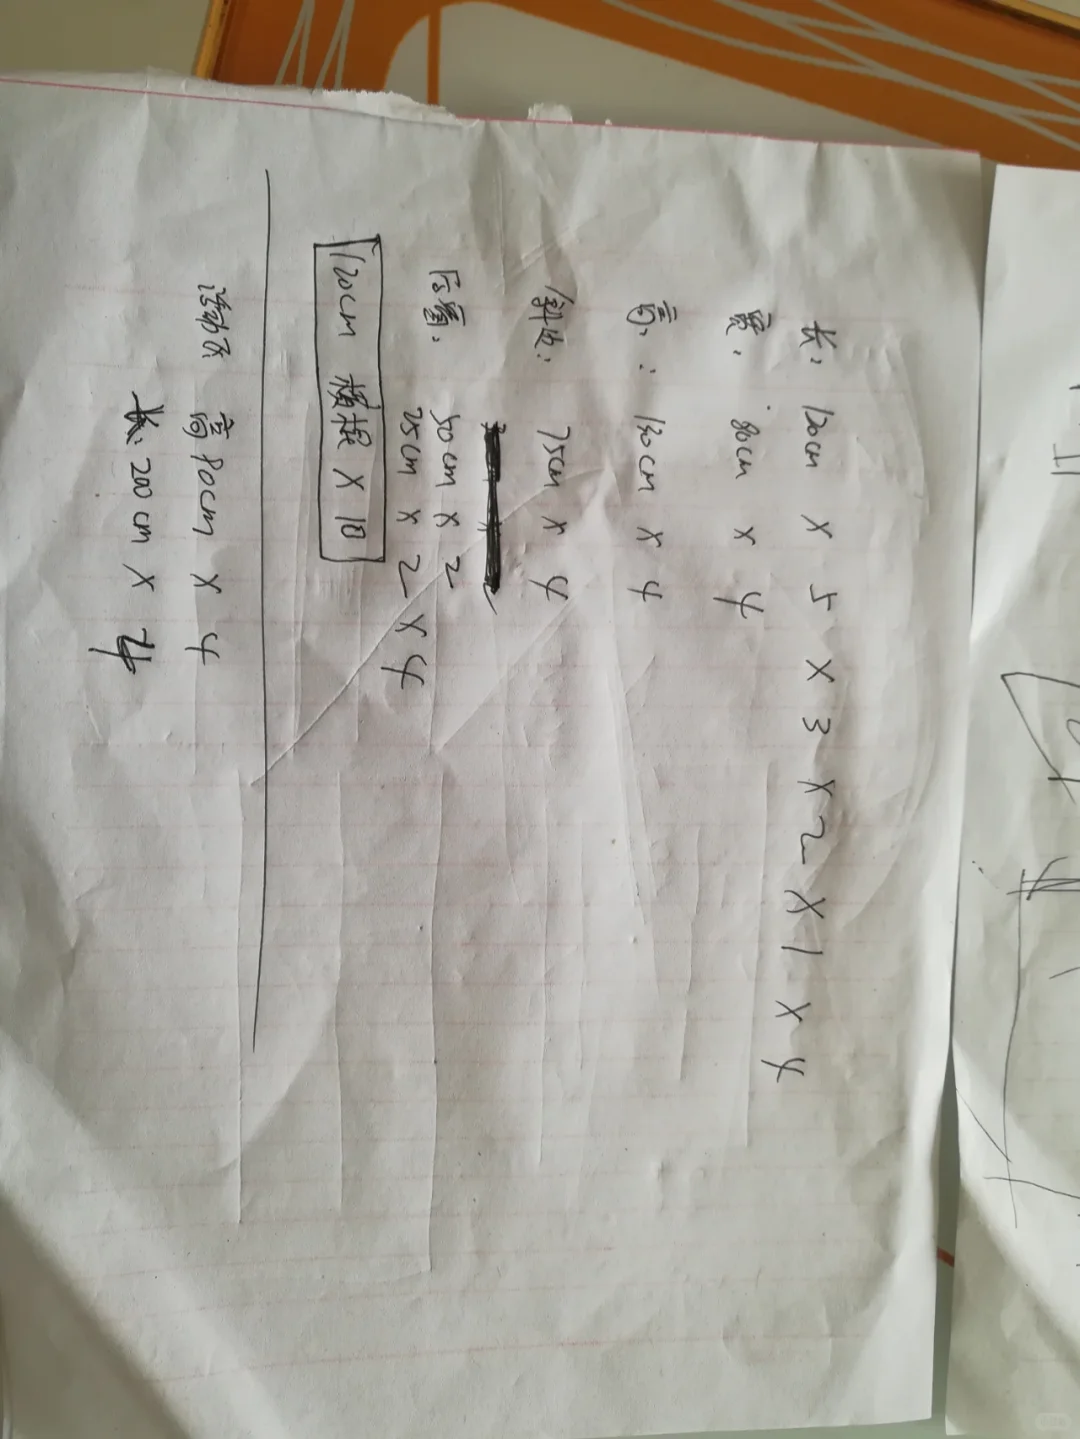 长: 120cm × 5 × 3 × 2 × 1 × 4
宽: 80cm × 4
高: 130cm × 4
斜边: 75cm × 4
50cm × 2
25cm × 2 × 4
120cm 横棍 × 10
活动区 高 80cm × 4
长: 200cm × 4